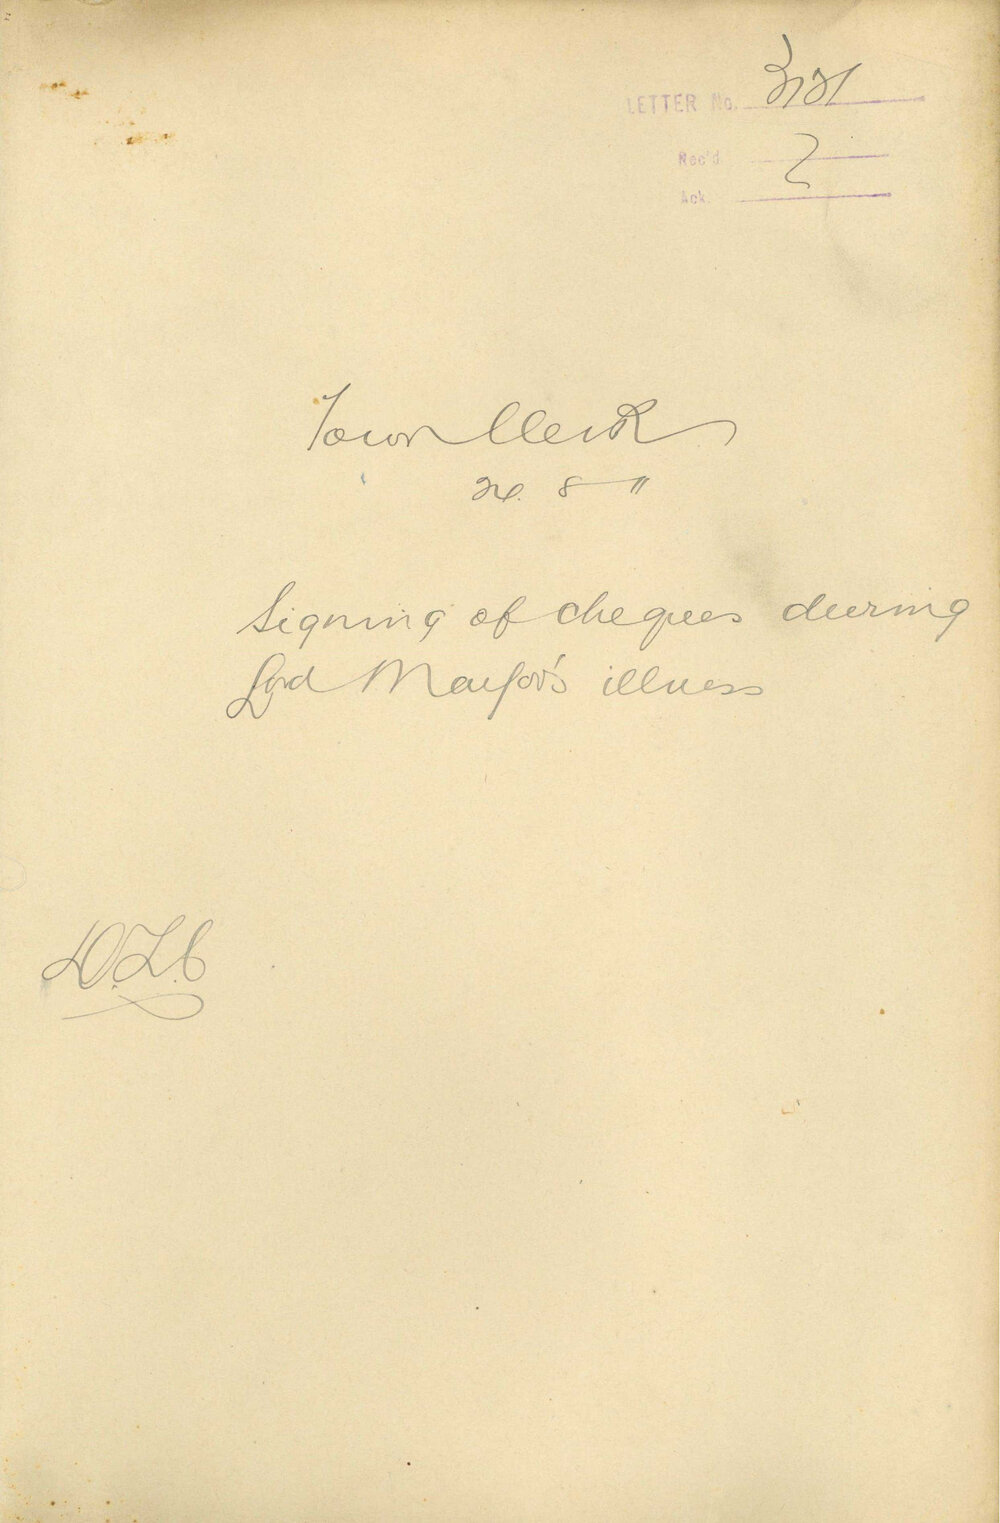 LETTER No. 3131
Rec'd
Ack.
Town Clerk
24. 8 - 11
Signing of cheques during
Lord Mayor's illness